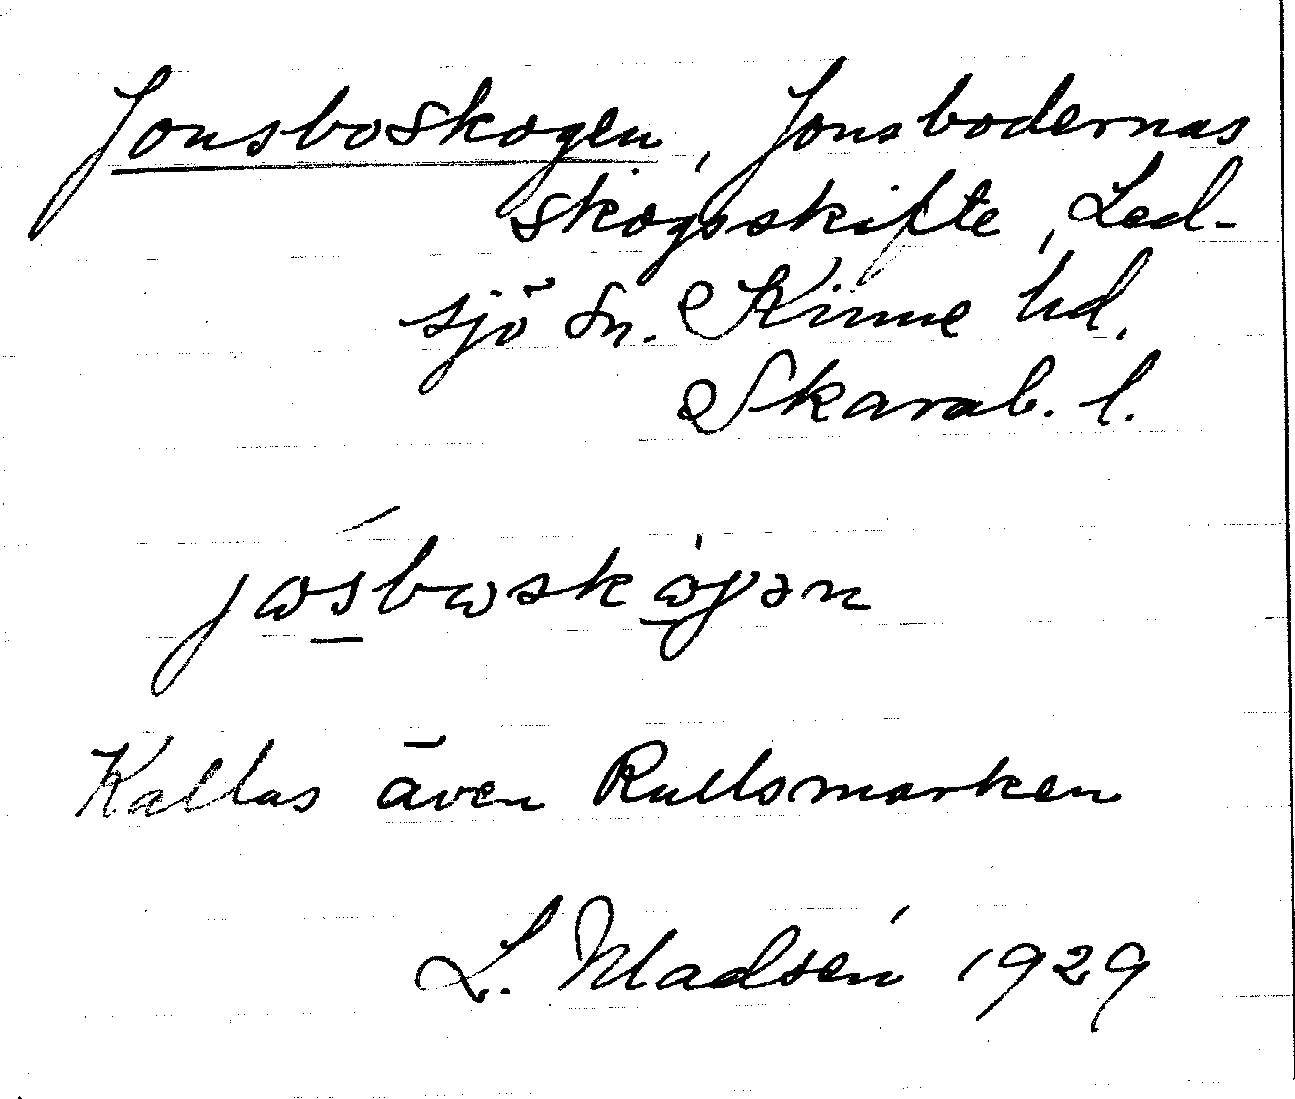 Jonsboskogen, Jonsbodernas
skogsskifte, Led-
sjö sn. Kinne hd.
Skarab. l.
Kallas även Rullsmarken
L. Madsén 1929